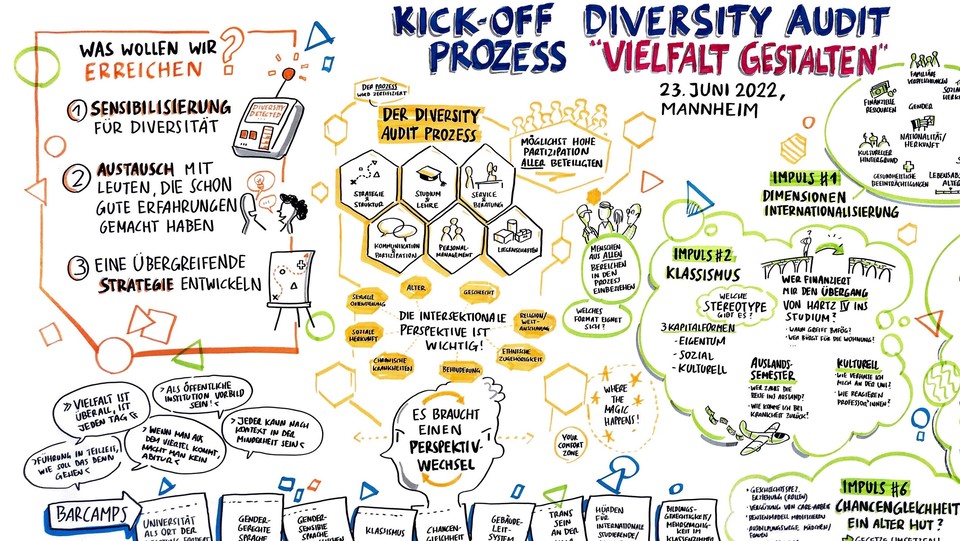 KICK-OFF DIVERSITY AUDIT
PROZESS "VIELFALT GESTALTEN"
23. JUNI 2022,
MANNHEIM
WAS WOLLEN WIR
ERREICHEN ?
1 SENSIBILISIERUNG
FÜR DIVERSITÄT
DIVERSITY
DETECTED
2 AUSTAUSCH MIT
LEUTEN, DIE SCHON
GUTE ERFAHRUNGEN
GEMACHT HABEN
3 EINE ÜBERGREIFENDE
STRATEGIE ENTWICKELN
DER PROZESS
WIRD ZERTIFIZIERT
DER DIVERSITY
AUDIT PROZESS
STRATEGIE
&
STRUKTUR
STUDIUM
& LEHRE
SERVICE
&
BERATUNG
KOMMUNIKATION
&
PARTIZIPATION
PERSONAL-
MANAGEMENT
LIEGENSCHAFTEN
MÖGLICHST HOHE
PARTIZIPATION
ALLER BETEILIGTEN
MENSCHEN
AUS ALLEN
BEREICHEN
IN DEN
PROZESS
EINBEZIEHEN
WELCHES
FORMAT EIGNET
SICH?
DIE INTERSEKTIONALE
PERSPEKTIVE IST
WICHTIG!
SEXUELLE
ORIENTIERUNG
ALTER
GESCHLECHT
RELIGION/
WELT-
ANSCHAUUNG
SOZIALE
HERKUNFT
CHRONISCHE
KRANKHEITEN
BEHINDERUNG
ETHNISCHE
ZUGEHÖRIGKEIT
ES BRAUCHT
EINEN
PERSPEKTIV-
WECHSEL
WHERE
THE
MAGIC
HAPPENS!
YOUR
COMFORT
ZONE
» VIELFALT IST
ÜBERALL, IST
JEDEN TAG «
> ALS ÖFFENTLICHE
INSTITUTION VORBILD
SEIN! <
> FÜHRUNG IN TEILZEIT,
WIE SOLL DAS DENN
GEHEN <
> WENN MAN AUS
DEM VIERTEL KOMMT,
MACHT MAN KEIN
ABITUR <
> JEDER KANN NACH
KONTEXT IN DER
MINDERHEIT SEIN <
BARCAMPS
UNIVERSITÄT
ALS ORT DER
GENDER-
GERECHTE
SPRACHE
GENDER-
SENSIBLE
SPRACHE
KLASSISMUS
CHANCEN-
GLEICHHEIT
GEBÄUDE-
LEIT-
SYSTEM
TRANS
SEIN
AN DER
HÜRDEN
FÜR
INTERNATIONALE
STUDIERENDE/
BILDUNGS-
GERECHTIGKEIT/
MEHRSPRACHIG-
KEIT IM
KLASSENZIMMER
IMPULS #1
DIMENSIONEN
INTERNATIONALISIERUNG
FAMILIÄRE
VERPFLICHTUNGEN
FINANZIELLE
RESSOURCEN
GENDER
NATIONALITÄT/
HERKUNFT
KULTURELLER
HINTERGRUND
GESUNDHEITLICHE
BEEINTRÄCHTIGUNGEN
IMPULS #2
KLASSISMUS
WELCHE
STEREOTYPE
GIBT ES?
3 KAPITALFORMEN
- EIGENTUM
- SOZIAL
- KULTURELL
WER FINANZIERT
MIR DEN ÜBERGANG
VON HARTZ IV INS
STUDIUM?
- WANN GREIFT BAFÖG?
- WER BÜRGT FÜR DIE WOHNUNG!
AUSLANDS-
SEMESTER
- WER ZAHLT DIE
REISE INS AUSLAND?
- WIE KOMME ICH BEI
KRANKHEIT ZURÜCK?
KULTURELL
- WIE VERHALTE ICH
MICH AN DER UNI?
- WIE REAGIEREN
PROFESSOR*INNEN?
• GESCHLECHTSPEZ.
ERZIEHUNG (ROLLEN)
• VERGÜTUNG VON CARE-ARBEIT
• RENTENMODELL MODIFIZIEREN
• AUSBILDUNGSWEGE MÄDCHEN/
FRAUEN
IMPULS #6
CHANCENGLEICHHEIT
EIN ALTER HUT?